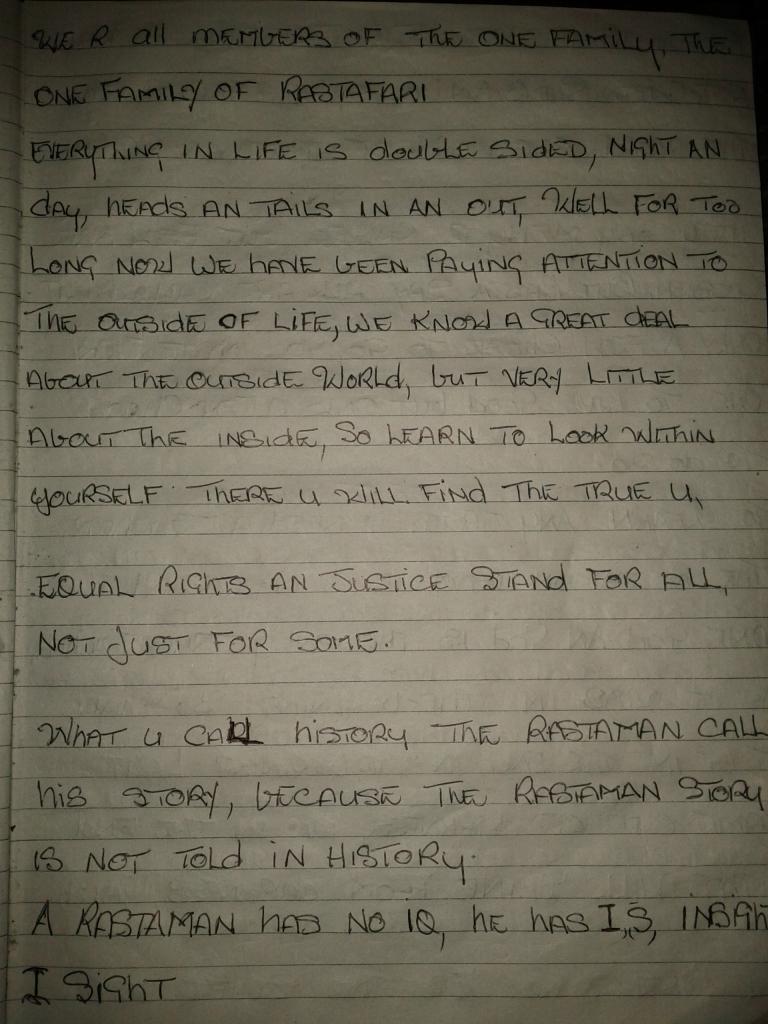 WE R all MEMBERS OF THE ONE FAMILY, THE
ONE FAMILY OF RASTAFARI
EVERYTHING IN LIFE IS dOUBLE SIDED, NIGHT AN
day, HEADS AN TAILS IN AN OUT, WELL FOR TOO
LONG NOW WE HAVE BEEN PAYING ATTENTION TO
THE OUTSIDE OF LIFE, WE KNOW A GREAT DEAL
ABOUT THE OUTSIDE WORLD, BUT VERY LITTLE
ABOUT THE INSIDE, SO LEARN TO LOOK WITHIN
YOURSELF THERE U WILL FIND THE TRUE U,
EQUAL RIGHTS AN JUSTICE STAND FOR ALL,
NOT JUST FOR SOME.
WHAT U CALL HISTORY THE RASTAMAN CALL
HIS STORY, BECAUSE THE RASTAMAN STORY
IS NOT TOLD IN HISTORY.
A RASTAMAN HAS NO IQ, HE HAS I,S,
I SIGHT